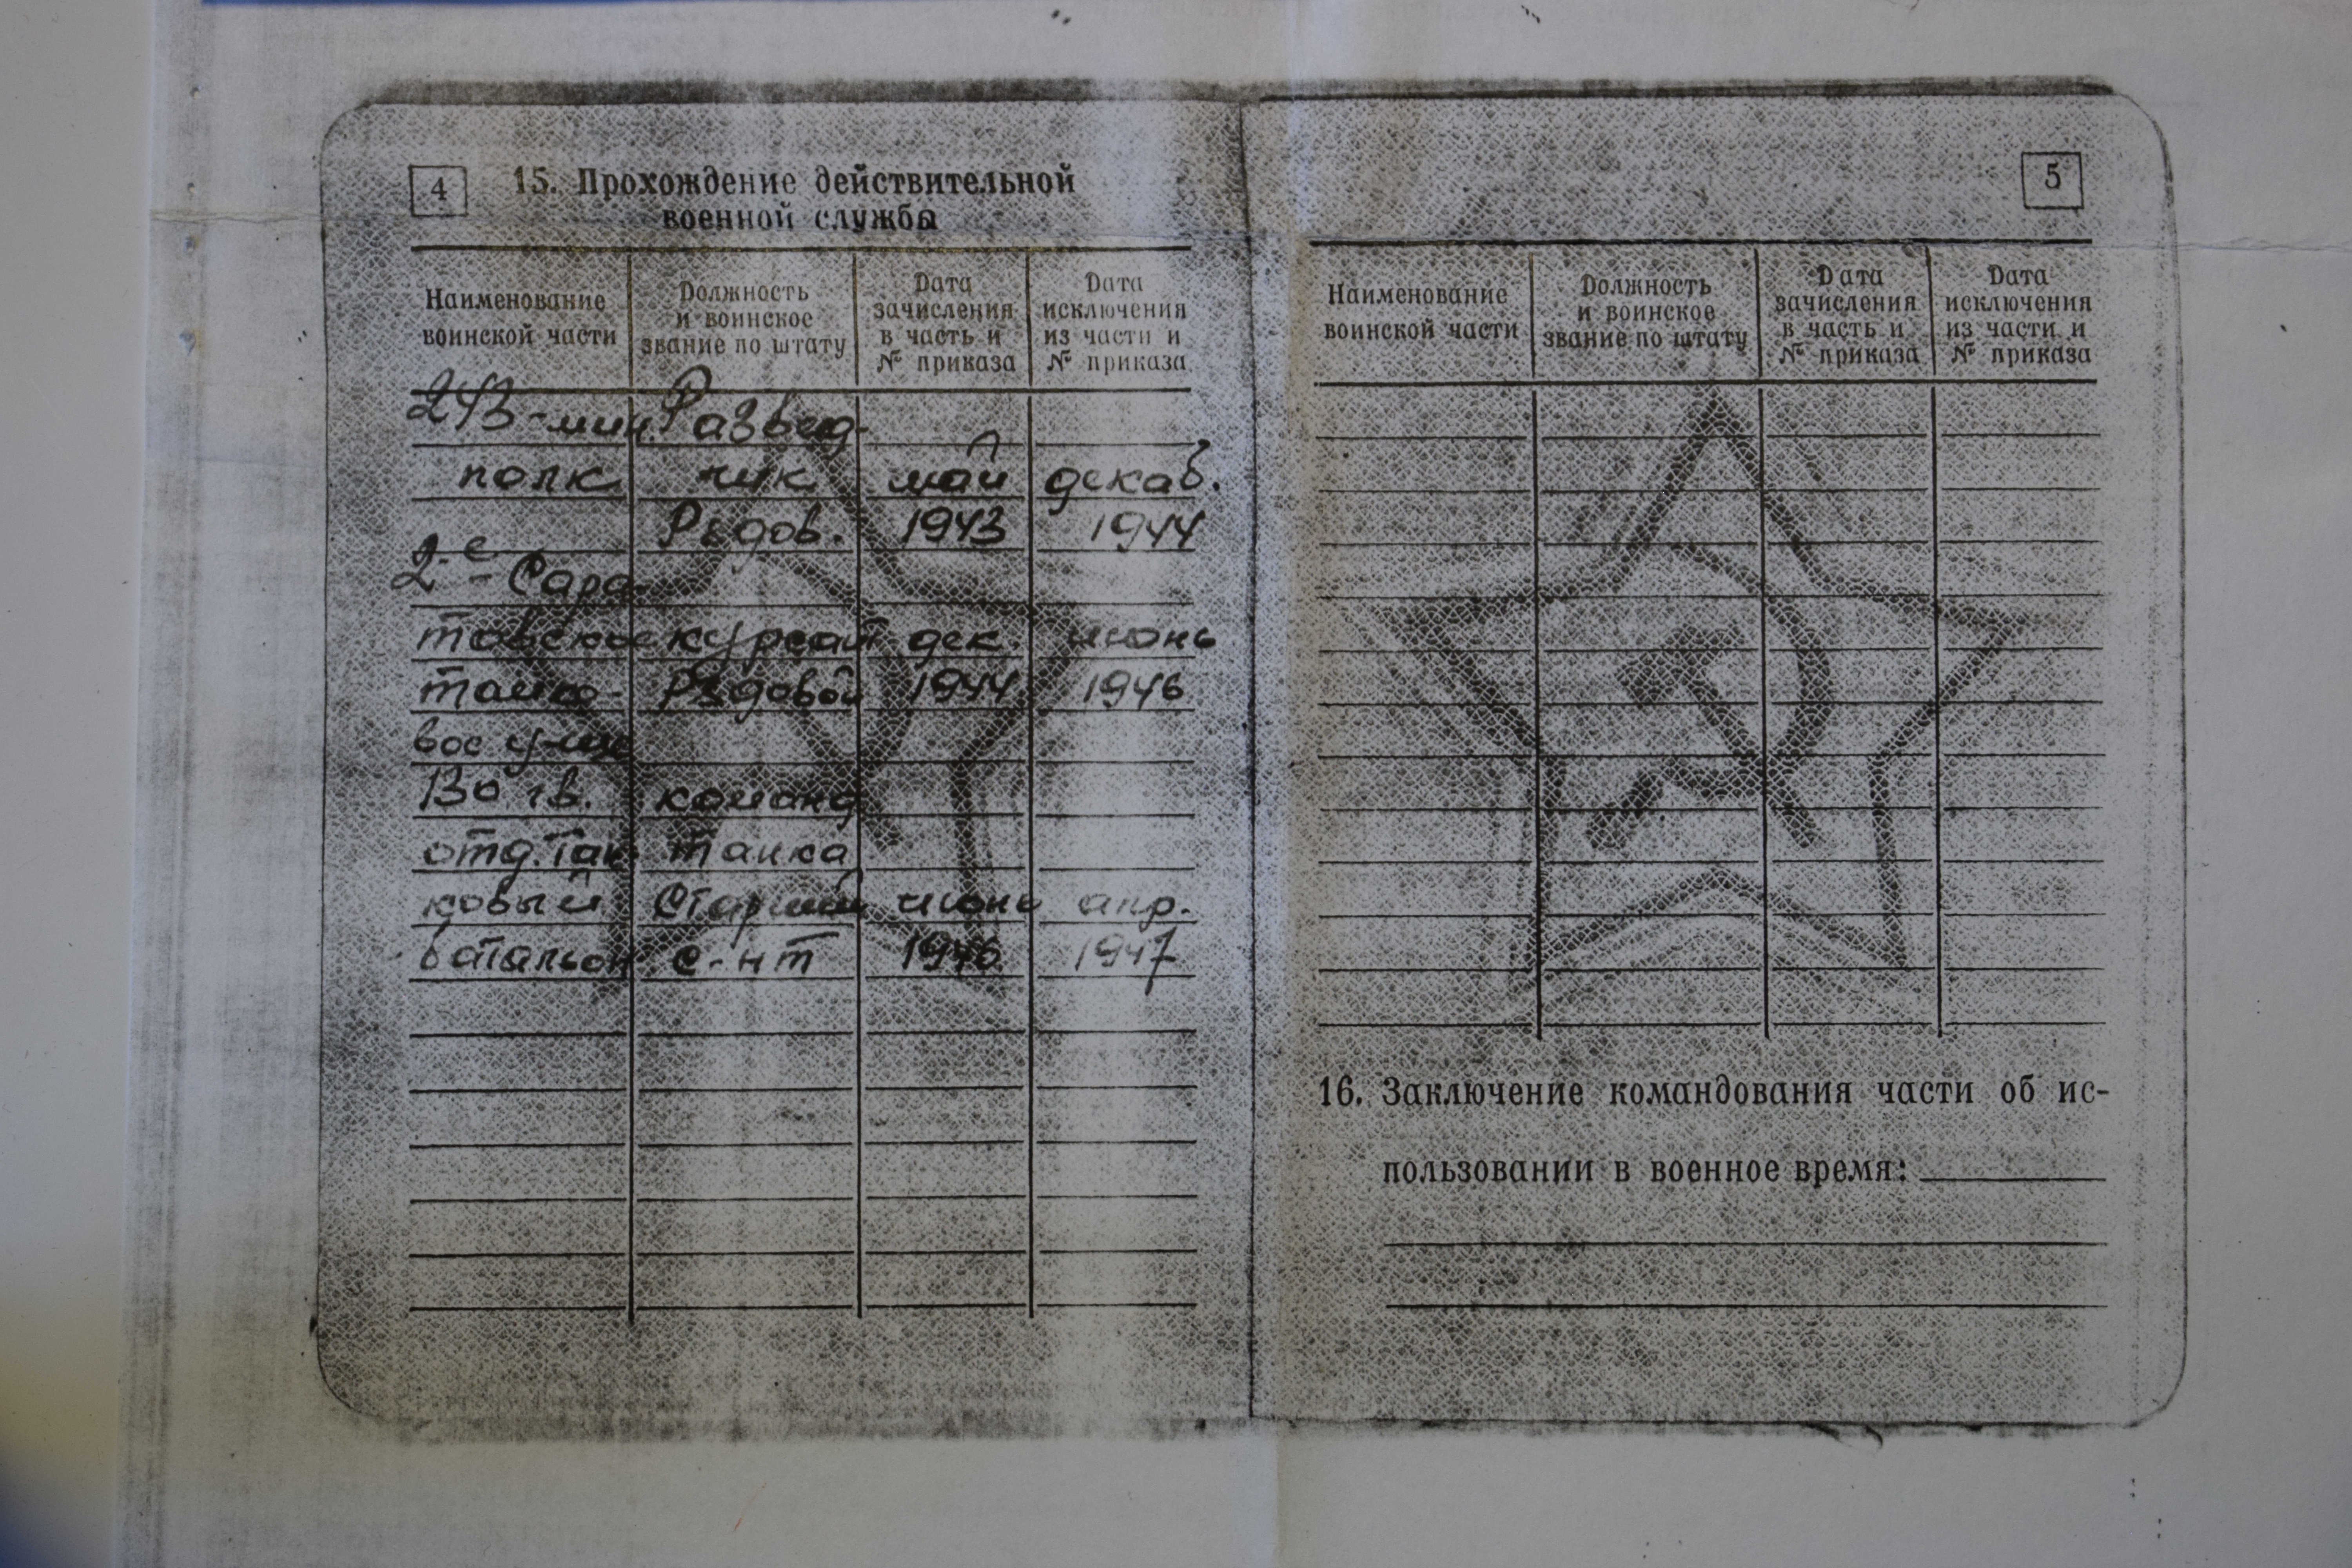 4
15. Прохождение действительной
военной службы
Наименование воинской части
Должность и воинское звание по штату
Дата зачисления в часть и № приказа
Дата исключения из части и № приказа
243-мин. Развед-
полк чик май декаб.
Рядов. 1943 1944
2-е Сара-
товское курсант дек. июнь
танко- Рядовой 1944 1946
вое уч-ще
130 гв. команд
отд. Тан- танка
ковый Старший июнь апр.
батальон с-нт 1946 1947
5
Наименование воинской части
Должность и воинское звание по штату
Дата зачисления в часть и № приказа
Дата исключения из части и № приказа
16. Заключение командования части об ис-
пользовании в военное время: